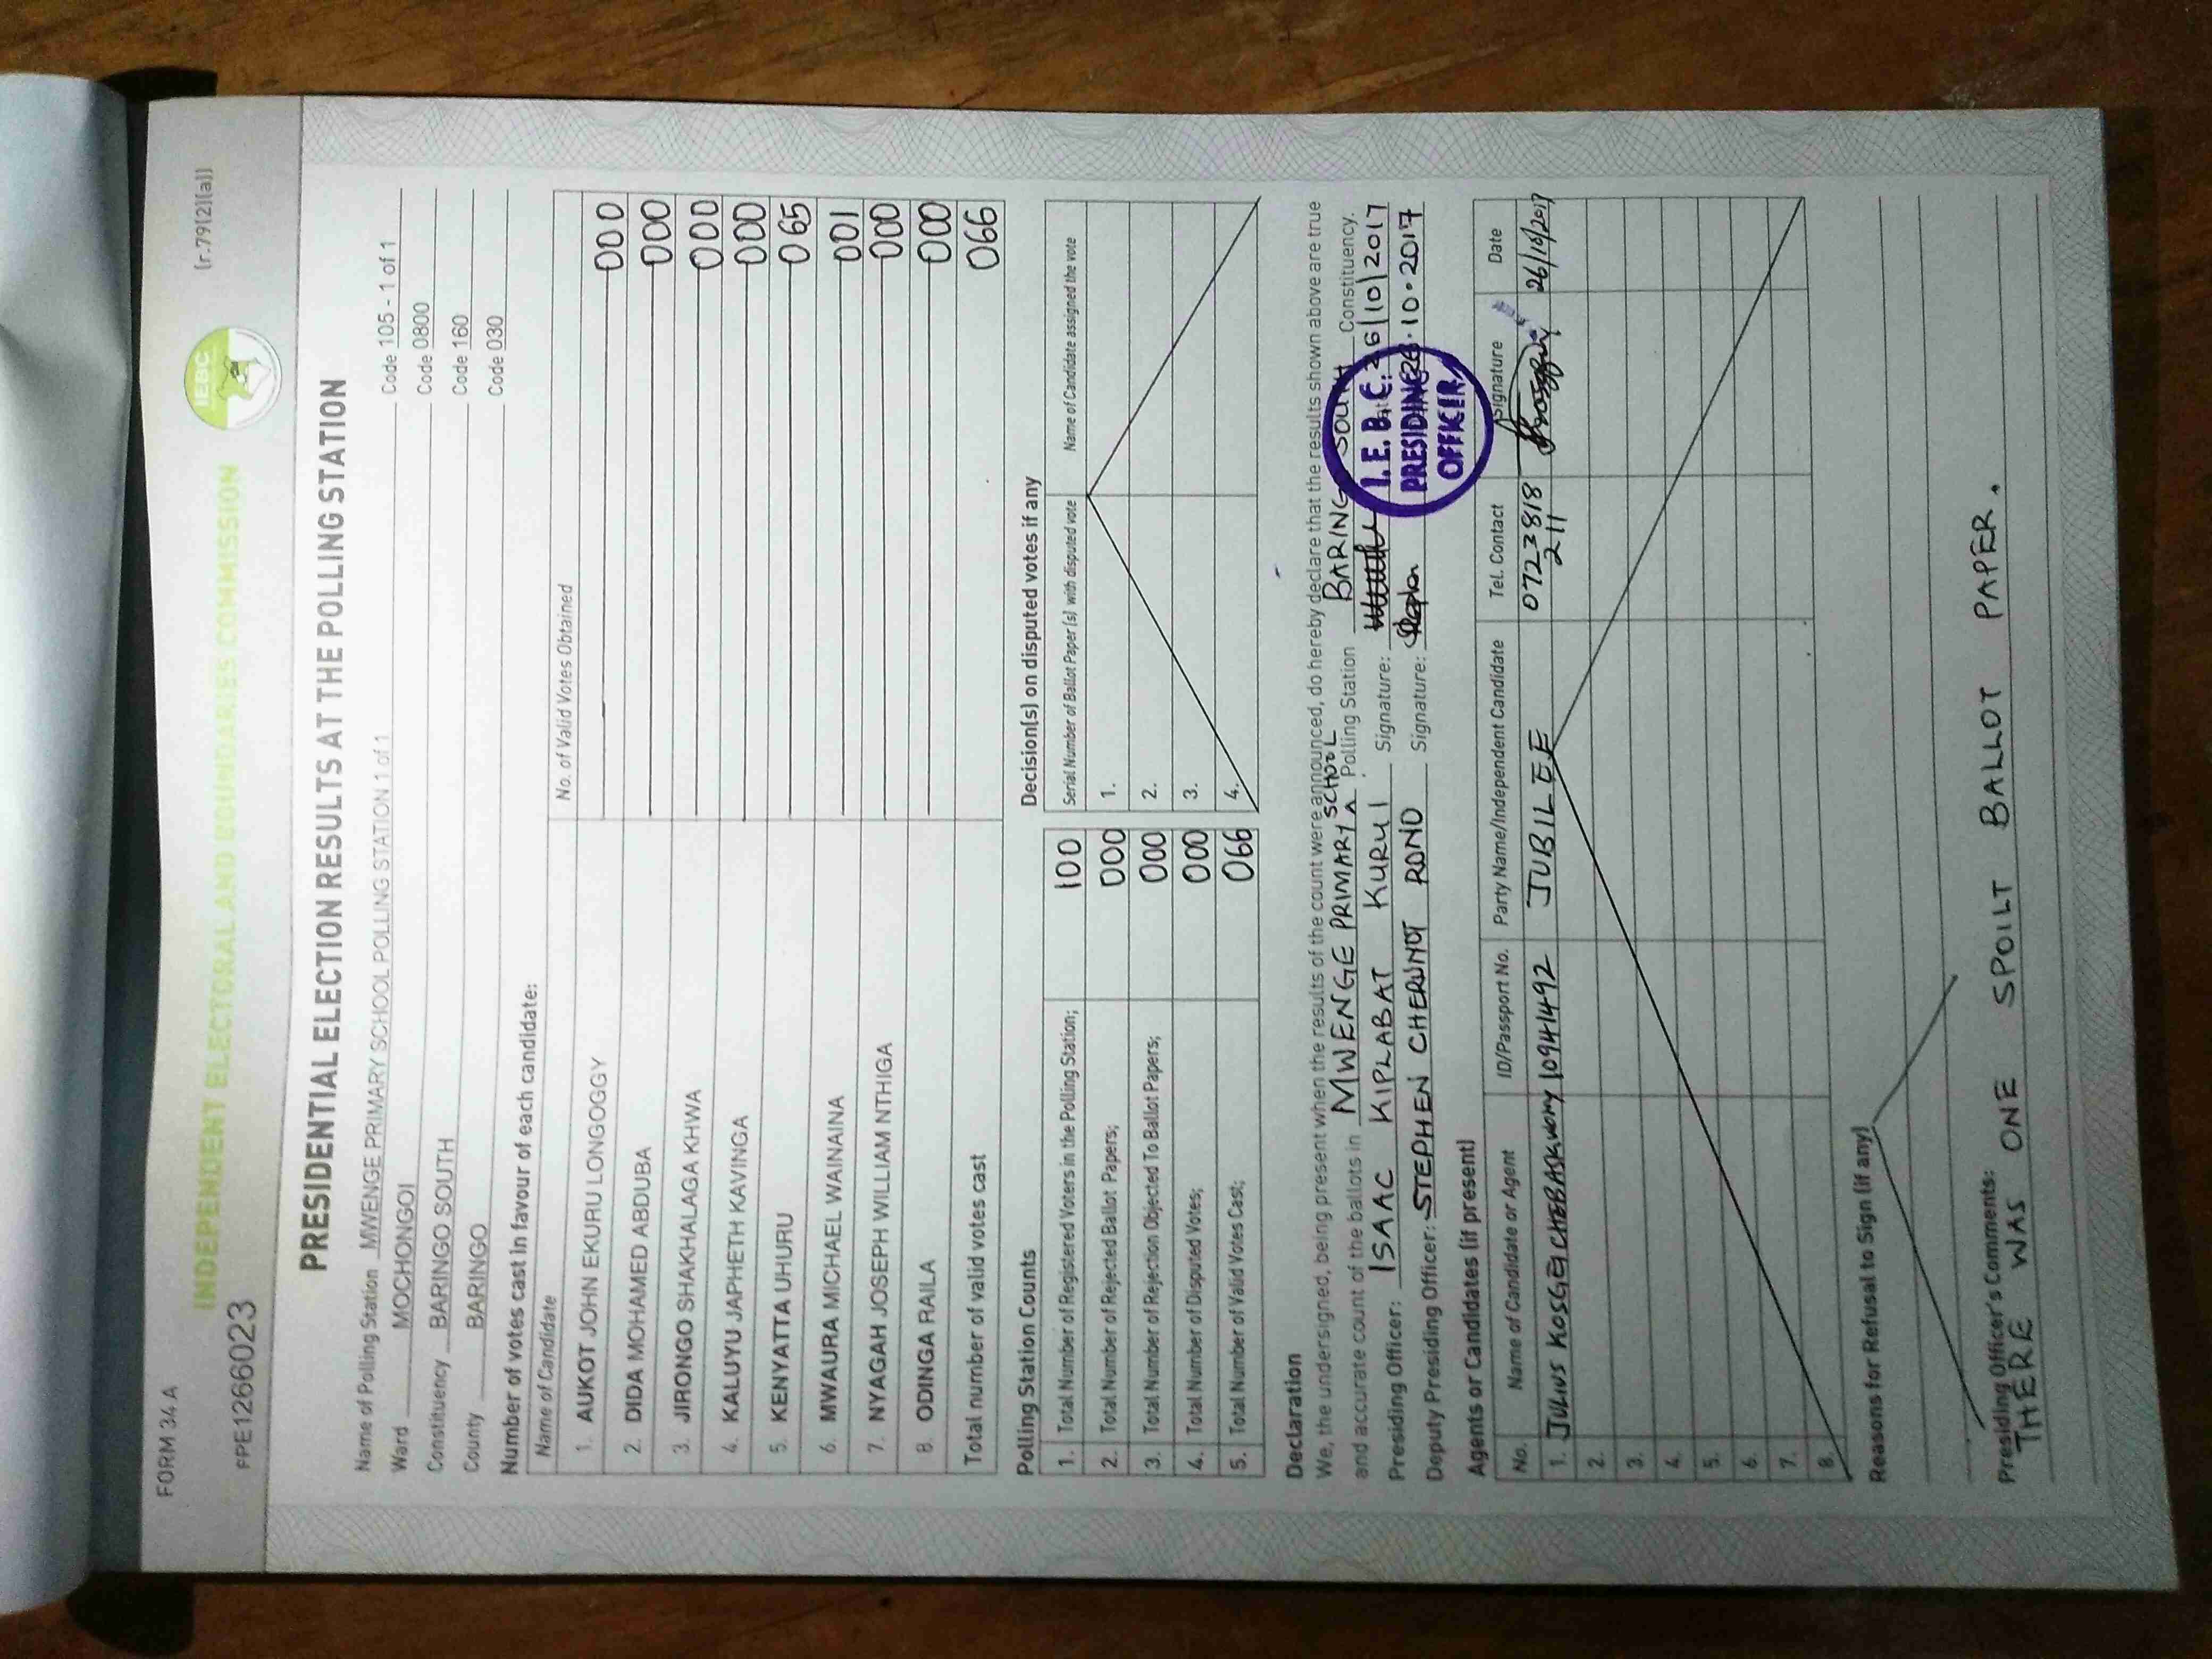 FORM 34 A
(r.79(2)(a))
IEBC
INDEPENDENT ELECTORAL AND BOUNDARIES COMMISSION
PPE1266023
PRESIDENTIAL ELECTION RESULTS AT THE POLLING STATION
Name of Polling Station MWENGE PRIMARY SCHOOL POLLING STATION 1 of 1 Code 105 - 1 of 1
Ward MOCHONGOI Code 0800
Constituency BARINGO SOUTH Code 160
County BARINGO Code 030
Number of votes cast in favour of each candidate:
Name of Candidate No. of Valid Votes Obtained
1. AUKOT JOHN EKURU LONGOGGY 000
2. DIDA MOHAMED ABDUBA 000
3. JIRONGO SHAKHALAGA KHWA 000
4. KALUYU JAPHETH KAVINGA 000
5. KENYATTA UHURU 065
6. MWAURA MICHAEL WAINAINA 001
7. NYAGAH JOSEPH WILLIAM NTHIGA 000
8. ODINGA RAILA 000
Total number of valid votes cast 066
Polling Station Counts
1. Total Number of Registered Voters in the Polling Station; 100
2. Total Number of Rejected Ballot Papers; 000
3. Total Number of Rejection Objected To Ballot Papers; 000
4. Total Number of Disputed Votes; 000
5. Total Number of Valid Votes Cast; 066
Decision(s) on disputed votes if any
Serial Number of Ballot Paper(s) with disputed vote Name of Candidate assigned the vote
1.
2.
3.
4.
Declaration
We, the undersigned, being present when the results of the count were announced, do hereby declare that the results shown above are true
and accurate count of the ballots in MWENGE PRIMARY SCHOOL Polling Station BARINGO SOUTH Constituency.
Presiding Officer: ISAAC KIPLABAT KURUI Signature: 26/10/2017
Deputy Presiding Officer: STEPHEN CHERUIYOT RONO Signature: 26.10.2017
I.E.B.C.
PRESIDING
OFFICER
Agents or Candidates (if present)
No. Name of Candidate or Agent ID/Passport No. Party Name/Independent Candidate Tel. Contact Signature Date
1. JULIUS KOSGEI CHEBASKWONY 10941492 JUBILEE 0723818 211 26/10/2017
2.
3.
4.
5.
6.
7.
8.
Reasons for Refusal to Sign (if any)
Presiding Officer's Comments:
THERE WAS ONE SPOILT BALLOT PAPER.